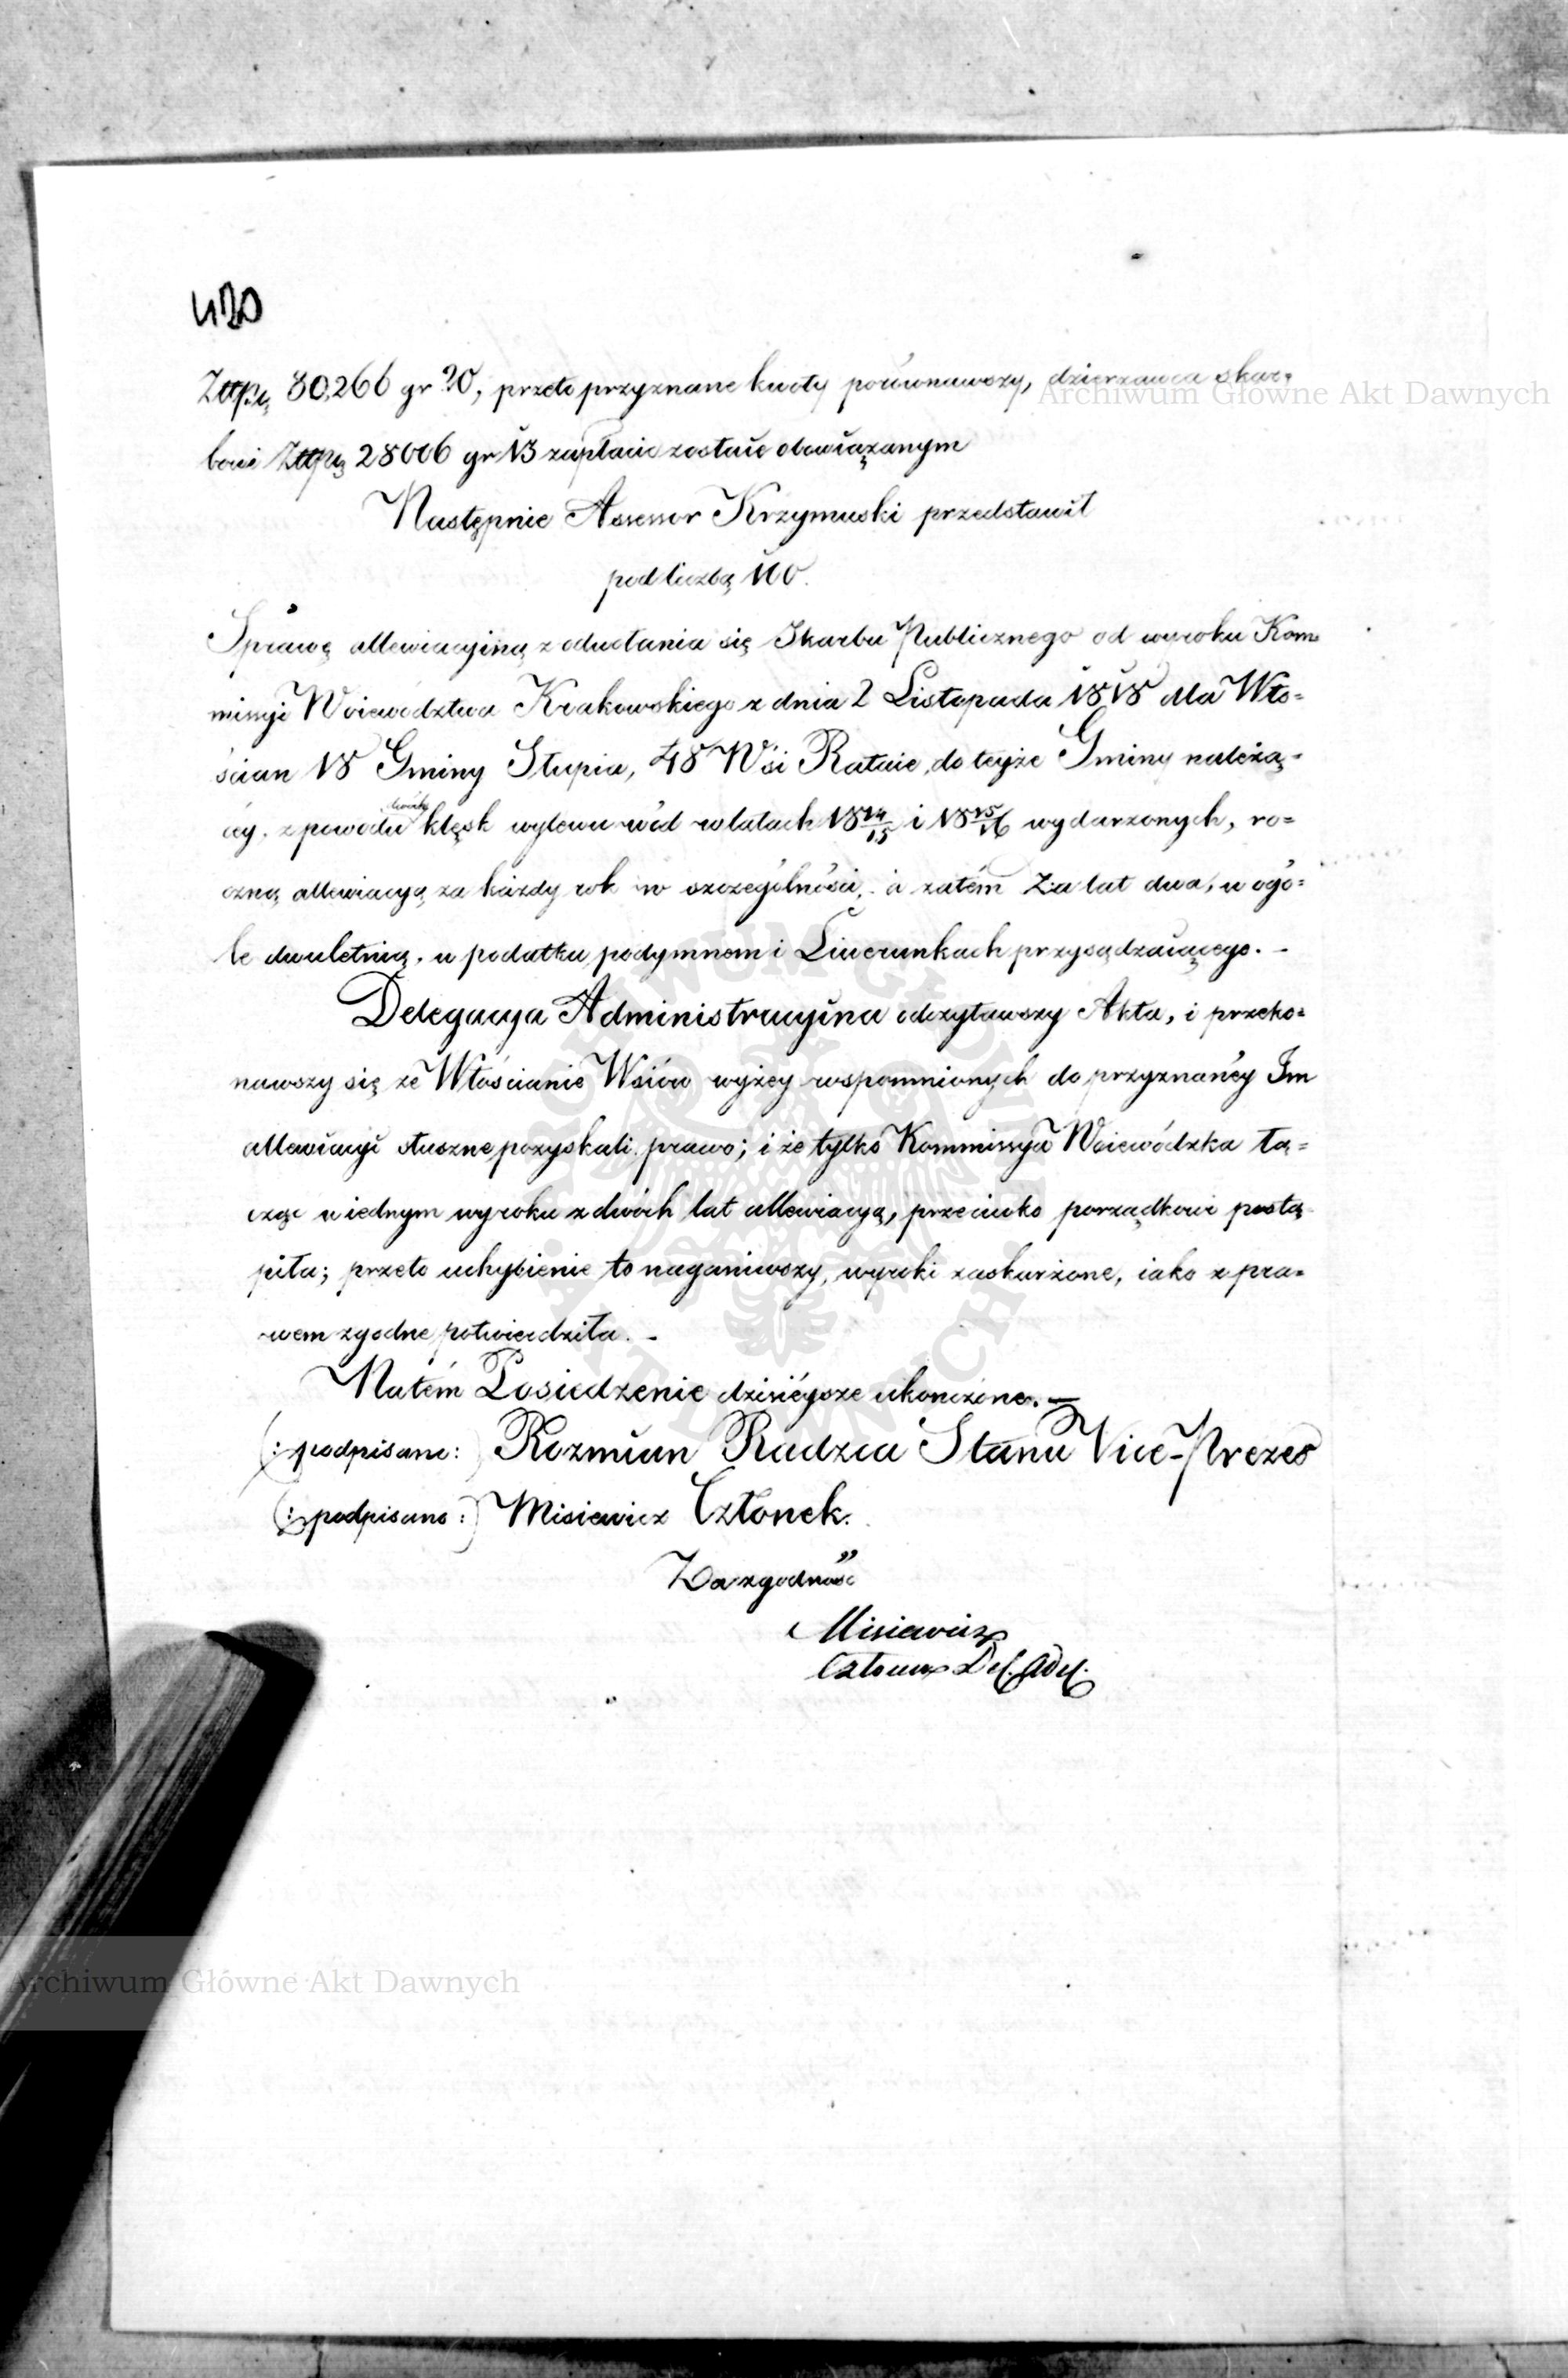 420
Złtpg 80,266 gr 20, przeto przyznane kwoty porównawszy, dzierzawca skar=
bowi Złtpg 28006 gr 13 zapłacić zostaie obowiązanym
Następnie Assessor Krzymuski przedstawił
pod liczbą 100.
Sprawę allewiacyiną z odwołania się Skarbu Publicznego od wyroku Kom=
missyi Woiewództwa Krakowskiego z dnia 2 Listopada 1818 dla Wło=
ścian 18 Gminy Słupia, 48 Wsi Rataie, do teyże Gminy należą=
céy, z powodu klęsk wylewu wód w latach 18 14/15 i 18 15/16 wydarzonych, ro=
czną allewiacyą za każdy rok w szczególności, a zatém za lat dwa, w ogó=
le dwuletnią, w podatku podymnem i Liwerunkach przysądzaiącego. -
Delegacya Administracyina odczytawszy Akta, i przeko=
nawszy się że Włościanie Wsiów wyżey wspomnionych do przyznanéy Im
allewiacyi słuszne pozyskali prawo; i że tylko Kommissya Woiewódzka łą=
cząc w iednym wyroku z dwóch lat allewiacyą, przeciwko porządkowi postą=
piła; przeto uchybienie to naganiwszy, wyroki zaskarżone, iako z pra=
wem zgodne potwierdziła. -
Natém Posiedzenie dzisiéysze ukończone. -
(: podpisano :) Kozmian Radzca Stanu Vice-Prezes
(: podpisano :) Misiewicz Członek.
Za zgodność
Misiewicz
Członek Del. Adm.
Archiwum Główne Akt Dawnych
Archiwum Główne Akt Dawnych
ARCHIWUM GŁÓWNE AKT DAWNYCH